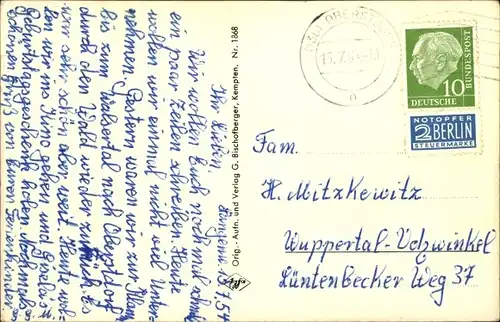 Langenwang 13.7.54
Ihr Lieben,
Wir wollen Euch noch mal schnell
ein paar Zeilen schreiben. Heute
wollen wir einmal nicht viel Unter-
nehmen. Gestern waren wir zur Alam
bis zum Walsertal nach Oberstdorf
durch den Wald wieder zurück. Es
war sehr schön aber weit. Heute wol-
len wir ins Kino gehen und Gerlos
Geburtstagsgeschenk holen. Nochmals
schönen Gruß von Euren Ferienkinder
Orig.-Aufn. und Verlag G. Bischofberger, Kempten. Nr. 1368
OBERSTD
15.7.54
10
DEUTSCHE
BUNDESPOST
NOTOPFER
2 BERLIN
STEUERMARKE
Fam.
H. Mitzkewitz
Wuppertal-Vohwinkel
Lüntenbecker Weg 37